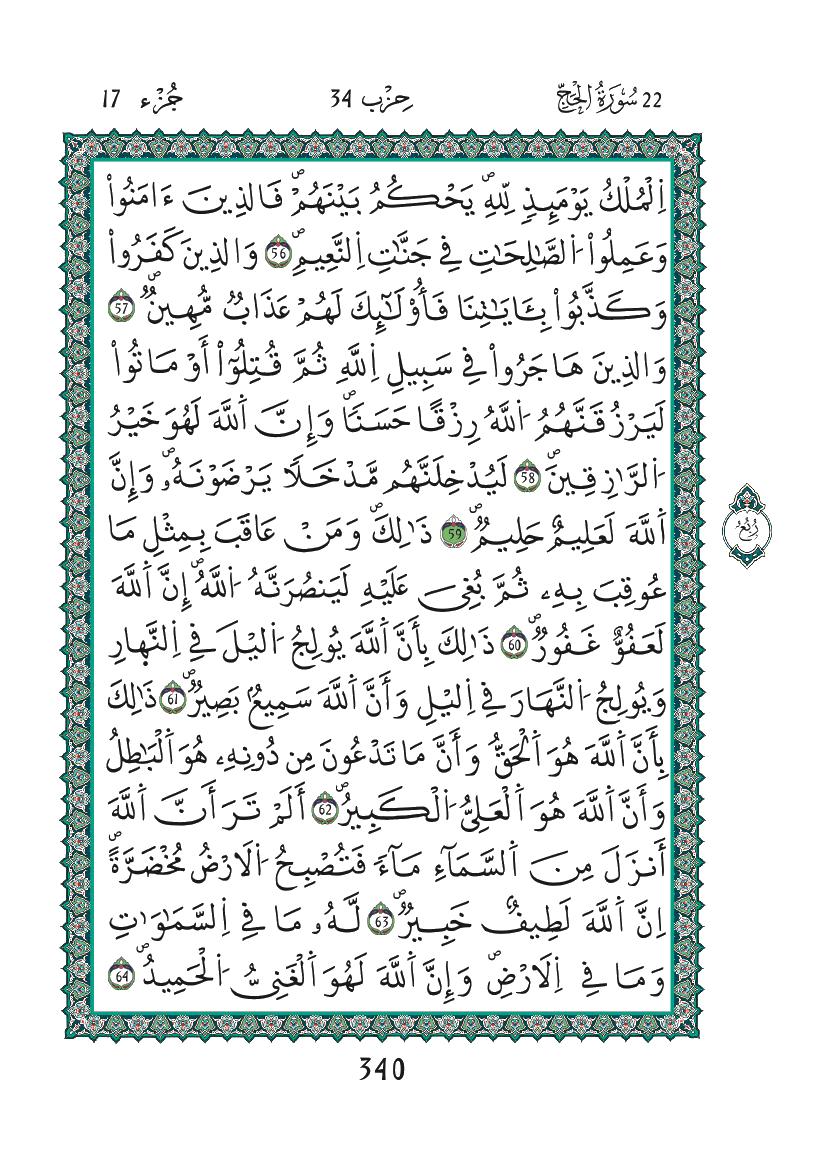 22 سُورَةُ الْحَجِّ حِزْب 34 جُزْء 17
اِ۬لْمُلْكُ يَوْمَئِذٍ لِّلهِۖ يَحْكُمُ بَيْنَهُمْۖ فَالذِينَ ءَامَنُواْ
وَعَمِلُواْ اُ۬لصَّٰلِحَٰتِ فِے جَنَّٰتِ اِ۬لنَّعِيمِۖ 56 وَالذِينَ كَفَرُواْ
وَكَذَّبُواْ بِـَٔايَٰتِنَا فَأُوْلَٰٓئِكَ لَهُمْ عَذَابٌ مُّهِينٌۖ 57
وَالذِينَ هَاجَرُواْ فِے سَبِيلِ اِ۬للَّهِ ثُمَّ قُتِلُوٓاْ أَوْ مَاتُواْ
لَيَرْزُقَنَّهُمُ اُ۬للَّهُ رِزْقًا حَسَنًاۖ وَإِنَّ اَ۬للَّهَ لَهُوَ خَيْرُ
اُ۬لرَّٰزِقِينَۖ 58 لَيُدْخِلَنَّهُم مَّدْخَلًا يَرْضَوْنَهُۥۖ وَإِنَّ
اَ۬للَّهَ لَعَلِيمٌ حَلِيمٌۖ 59 ذَٰلِكَۖ وَمَنْ عَاقَبَ بِمِثْلِ مَا
عُوقِبَ بِهِۦ ثُمَّ بُغِيَ عَلَيْهِ لَيَنصُرَنَّهُ اُ۬للَّهُۖ إِنَّ اَ۬للَّهَ
لَعَفُوٌّ غَفُورٌۖ 60 ذَٰلِكَ بِأَنَّ اَ۬للَّهَ يُولِجُ اُ۬ليْلَ فِے اِ۬لنَّهارِ
وَيُولِجُ اُ۬لنَّهَارَ فِے اِ۬ليْلِ وَأَنَّ اَ۬للَّهَ سَمِيعٌۢ بَصِيرٌۖ 61 ذَٰلِكَ
بِأَنَّ اَ۬للَّهَ هُوَ اَ۬لْحَقُّ وَأَنَّ مَا تَدْعُونَ مِن دُونِهِۦ هُوَ اَ۬لْبَٰطِلُ
وَأَنَّ اَ۬للَّهَ هُوَ اَ۬لْعَلِيُّ اُ۬لْكَبِيرُۖ 62 أَلَمْ تَرَ أَنَّ اَ۬للَّهَ
أَنزَلَ مِنَ اَ۬لسَّمَآءِ مَآءً فَتُصْبِحُ اُ۬لَارْضُ مُخْضَرَّةًۖ
اِنَّ اَ۬للَّهَ لَطِيفٌ خَبِيرٌۖ 63 لَّهُۥ مَا فِے اِ۬لسَّمَٰوَٰتِ
وَمَا فِے اِ۬لَارْضِۖ وَإِنَّ اَ۬للَّهَ لَهُوَ اَ۬لْغَنِيُّ اُ۬لْحَمِيدُۖ 64
رُبُع
340